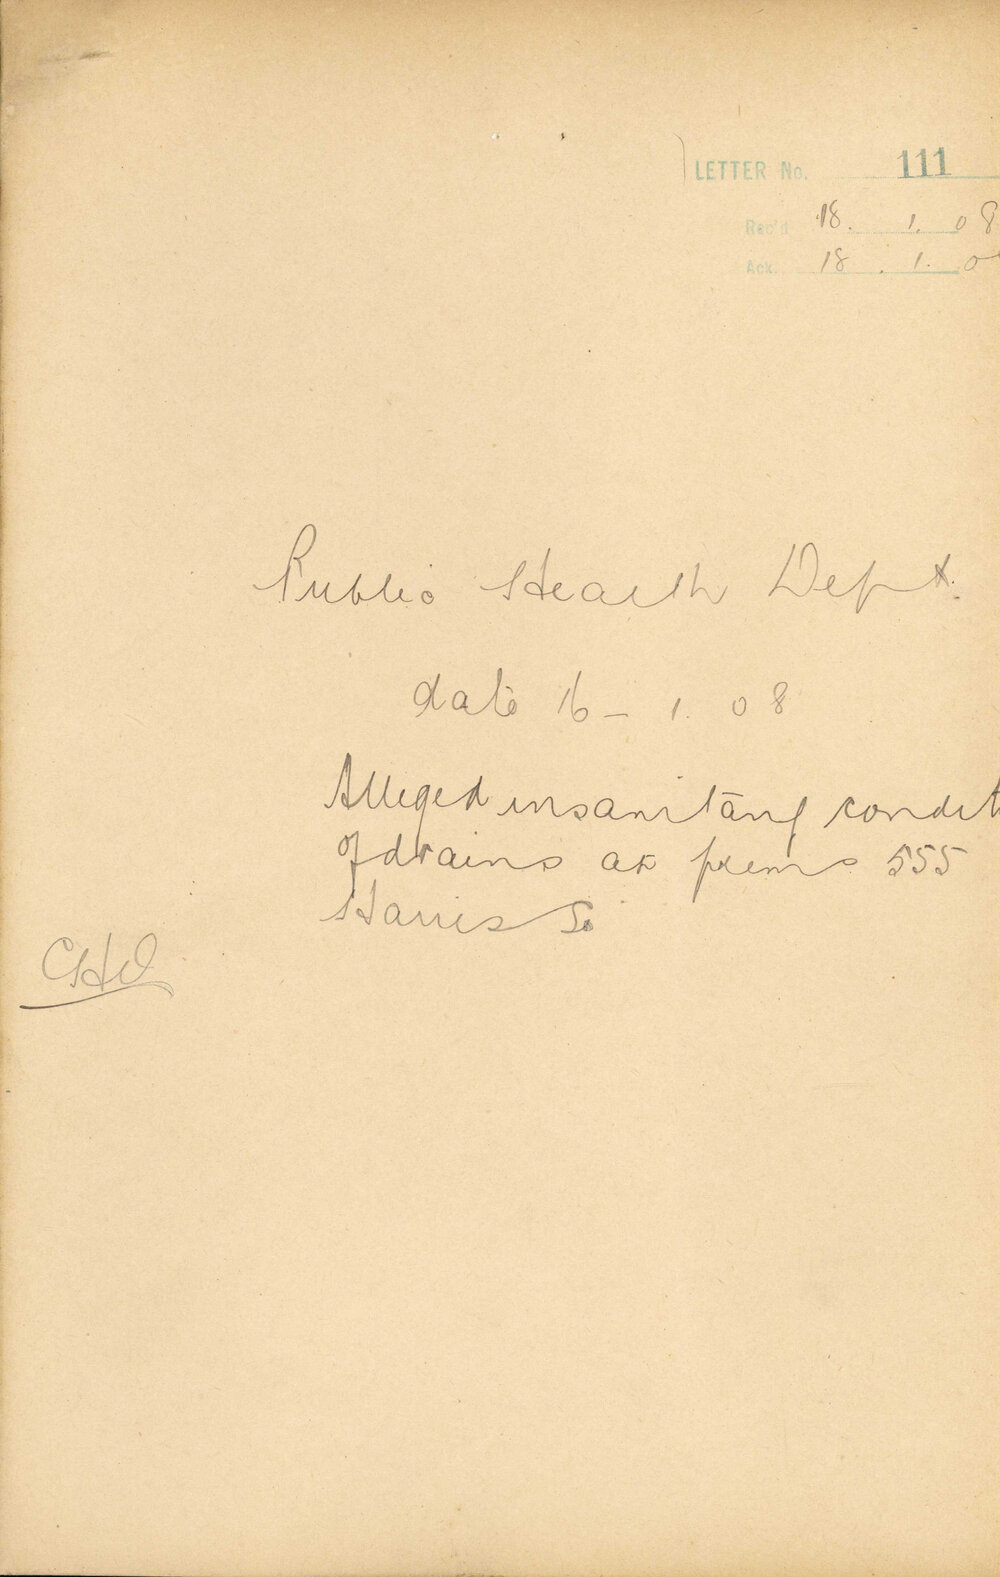 LETTER No. 111
Rec'd 18. 1. 08
Ack. 18. 1. 0
Public Health Dept.
date 16 - 1. 08
Alleged insanitary condit
of drains at prems 555
Harris St